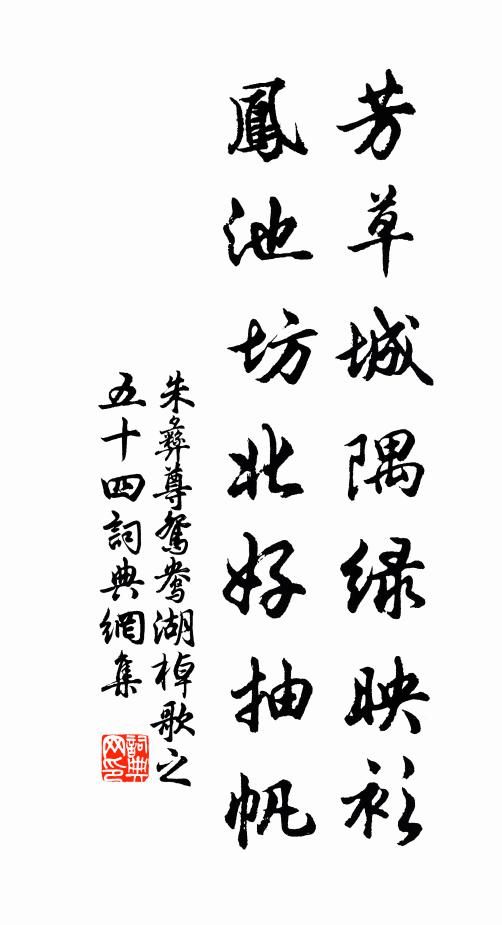 芳草城隅绿映衫
鳳池坊北好抽帆
朱彝尊鴛鴦湖棹歌之
五十四詞典網集
詞典网印